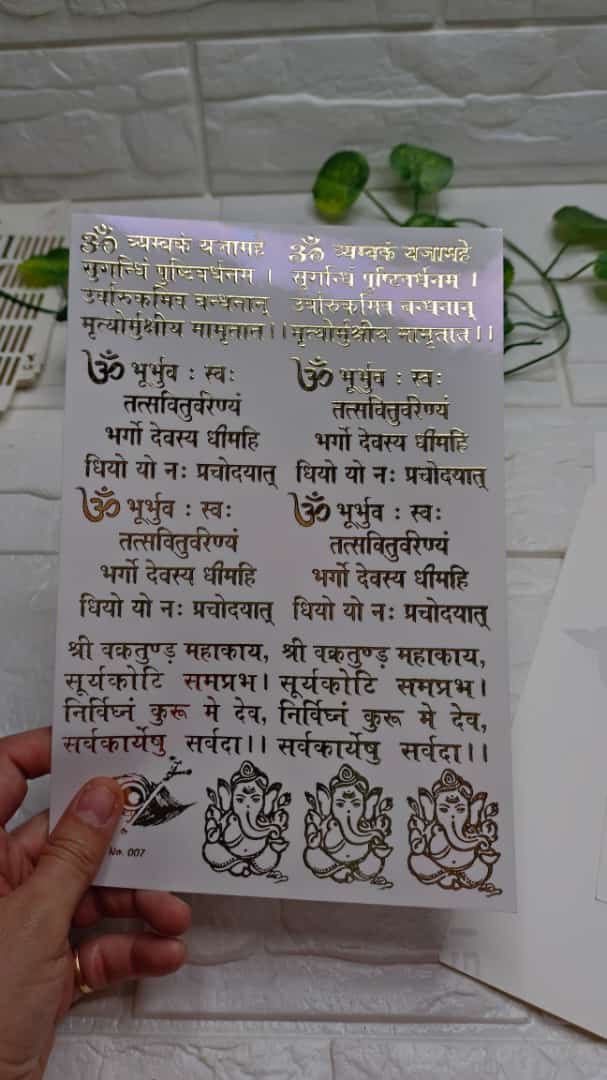 ॐ त्र्यम्बकं यजामहे
सुगन्धिं पुष्टिवर्धनम ।
उर्वारुकमिव बन्धनान्
मृत्योर्मुक्षीय मामृतात ।।
ॐ त्र्यम्बकं यजामहे
सुगन्धिं पुष्टिवर्धनम ।
उर्वारुकमिव बन्धनान्
मृत्योर्मुक्षीय मामृतात ।।
ॐ भूर्भुव : स्वः
तत्सवितुर्वरेण्यं
भर्गो देवस्य धीमहि
धियो यो नः प्रचोदयात्
ॐ भूर्भुव : स्वः
तत्सवितुर्वरेण्यं
भर्गो देवस्य धीमहि
धियो यो नः प्रचोदयात्
ॐ भूर्भुव : स्वः
तत्सवितुर्वरेण्यं
भर्गो देवस्य धीमहि
धियो यो नः प्रचोदयात्
ॐ भूर्भुव : स्वः
तत्सवितुर्वरेण्यं
भर्गो देवस्य धीमहि
धियो यो नः प्रचोदयात्
श्री वक्रतुण्ड़ महाकाय,
सूर्यकोटि समप्रभ।
निर्विघ्नं कुरू मे देव,
सर्वकार्येषु सर्वदा।।
श्री वक्रतुण्ड़ महाकाय,
सूर्यकोटि समप्रभ।
निर्विघ्नं कुरू मे देव,
सर्वकार्येषु सर्वदा।।
No. 007